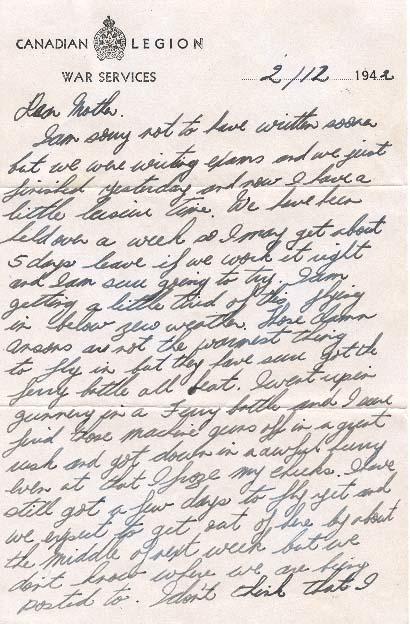 CANADIAN LEGION
WAR SERVICES
2/12 1942
Dear Mother.
I am sorry not to have written sooner
but we were writing exams and we just
finished yesterday and now I have a
little leisure time. We have been
held over a week so I may get about
5 days leave if we work it right
and I am sure going to try. I am
getting a little tired of this flying
in below zero weather. Those damn
ansons are not the warmest thing
to fly in but they have sure got the
ferry battle all beat. I went up in
gunnery in a Ferry battle and I sure
fired those machine guns off in a great
rush and got down in a awful hurry
even at that I froze my cheeks. I have
still got a few days to fly yet and
we expect to get out of here by about
the middle of next week but we
don't know where we are being
posted to. I don't think that I